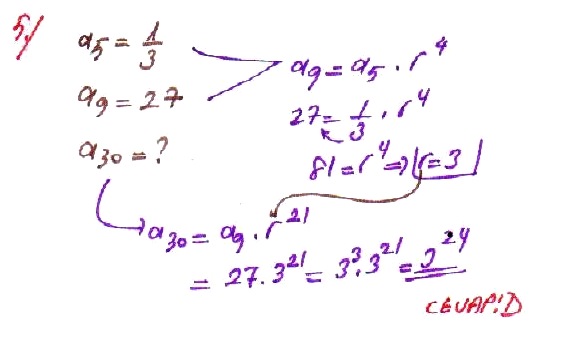 5)
a₅ = 1/3
a₉ = 27
a₃₀ = ?
a₉ = a₅ · r⁴
27 = 1/3 · r⁴
81 = r⁴ ⇒ r = 3
a₃₀ = a₉ · r²¹
= 27 · 3²¹ = 3³ · 3²¹ = 3²⁴
CEVAP: D